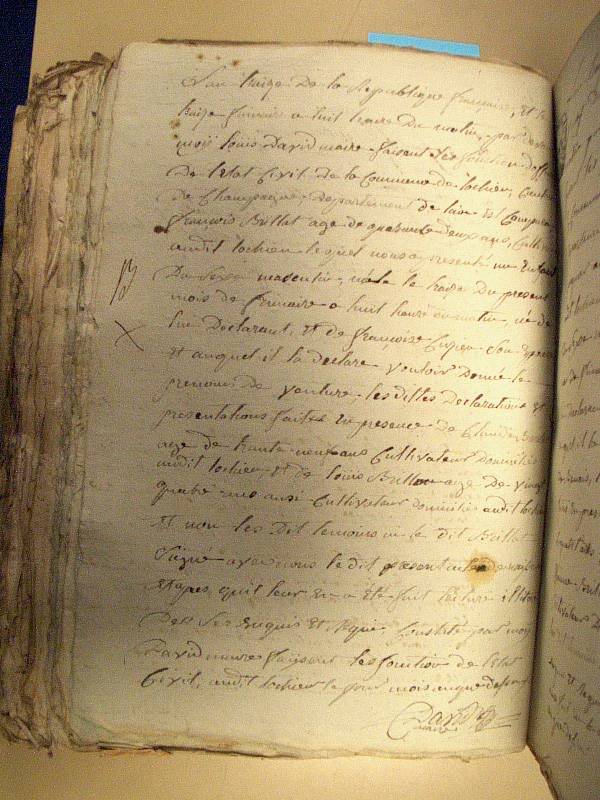 L'an treize De la Republique francaise, Et le
treize frimaire a huit heure Du matin, par devan
moy louis David maire faisant Les fonction d'off
De letat Civil De la Commune de lochieu, Canton
De Champagne Departement de lain Est Comparu
francois Brillat age de quarante deux ans, Culti
audit lochieu lequel nous a presenté un Enfant
Du Sexe masculin, née le treize Du present
mois de frimaire a huit heure du matin, né de
lui Declarant, Et de francoise Son Epouse
Et auquel il la declaré vouloir Donné le
prenom De les dittes Declarations Et
presentations faites En presence de Claude
age de trente neuf ans Cultivateur Domicilié
audit lochieu Et de louis Brillat age de vingt
quatre ans aussi Cultivateur domicilié audit lochieu
Et non les Dit temoins ni le dit Brillat
Signé avec nous le dit present acte
apres quil leur En a Eté fait lecture illiteré
De Ser Enquis Et Requi, Constaté par moy
David maire faisant les fonction de letat
Civil, audit lochieu le jour mois an que dessus
David
maire